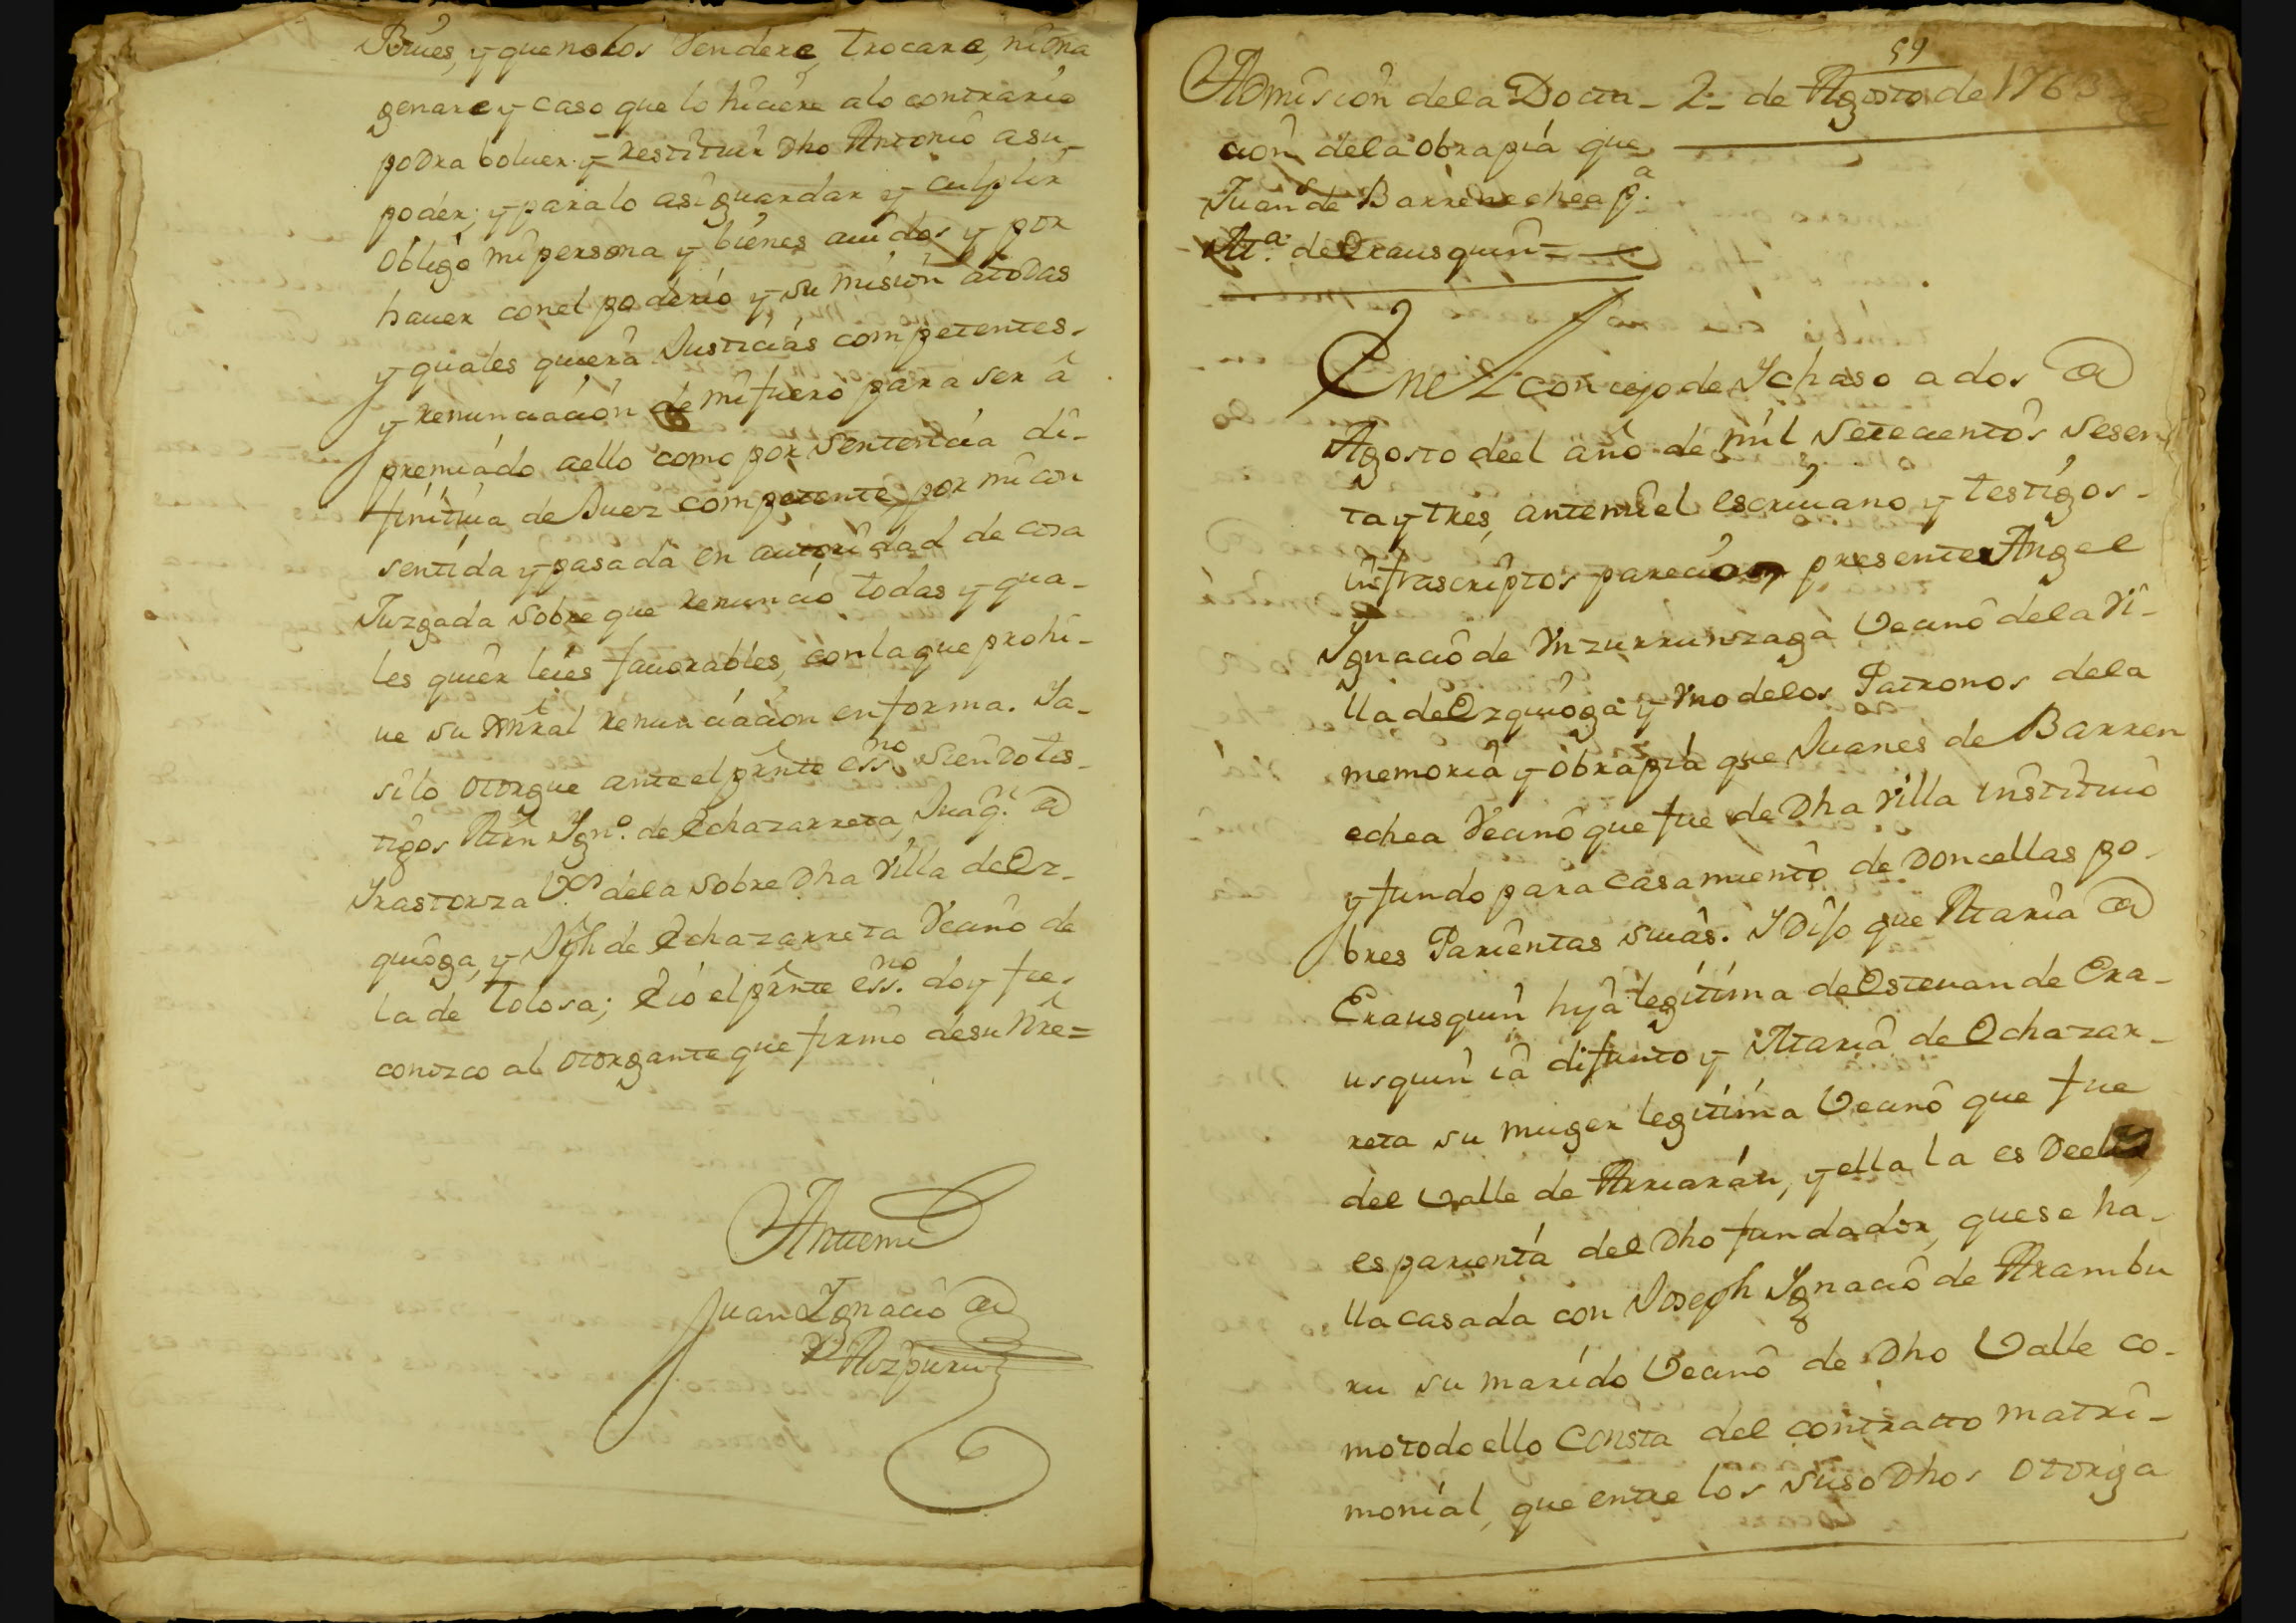 Bries, y que nolos Vendere, trocare, ni ena
genare y caso que lo hiciere alo contrario
podra boluer y restituir Dho Antonio asu
poder; y paralo asi guardar y culplir
obligo mi persona y bienes auidos y por
hauer conel poderio y su mision atodas
y quales quiera Justicias competentes
y renunciación de mi fuero para ser â
premiado aello como por sentencia di-
finitiua de Juez competente, por mi con
sentida y pasada en autoridad de cosa
Juzgada sobre que renunció todas y qua-
les quier leies fauorables, con la que prohi-
ue su Gnral renunciacion en forma. Ya-
silo otorgue ante el prnte essno siendotes-
tigos Mrn Igno. de Echazarreta, Juaq.n de
Yrastorza Vos dela sobre Dha Villa de Ez-
quioga, y Jph de Echazarreta Vecino de
la de Tolosa; E ió el prnte essno doy fee
conozco al otorgante que firmó de su Nre=
Antemi
Juan Ignacio de
Aizpuru
59
Admision dela Dota- 2- de Agosto de 1763
ción dela obrapia que
Juan de Barrenechea pa.
Ma. de Erausquin=
En el concejo de Ychaso a dos de
Agosto deel año de mil setecientos sesen
ta y tres, ante mi el escriuano y testigos
infrascriptos pareció presente Angel
Ygnacio de Ynzurrunzaga Vecino dela Vi-
lla de Ezquioga y Vno delos Patronos dela
memoria y obrapia que Juanes de Barren
echea Vecino que fue de Dha Villa instituió
y fundo para casamiento de Doncellas po-
bres Parientas suias. Y Dijo que Maria de
Erausquin hija legitima de Estevan de Era-
usquin iâ difunto y Maria de Echazar-
reta su muger legitima Vecino que fue
del Valle de Arriarán, y ella la es Deel
es parienta del Dho fundador, que se ha-
lla casada con Joseph Ygnacio de Arambu
ru su marido Vecino de Dho Valle co-
mo todo ello consta del contracto matri-
monial, que entre los suso Dhos otorga